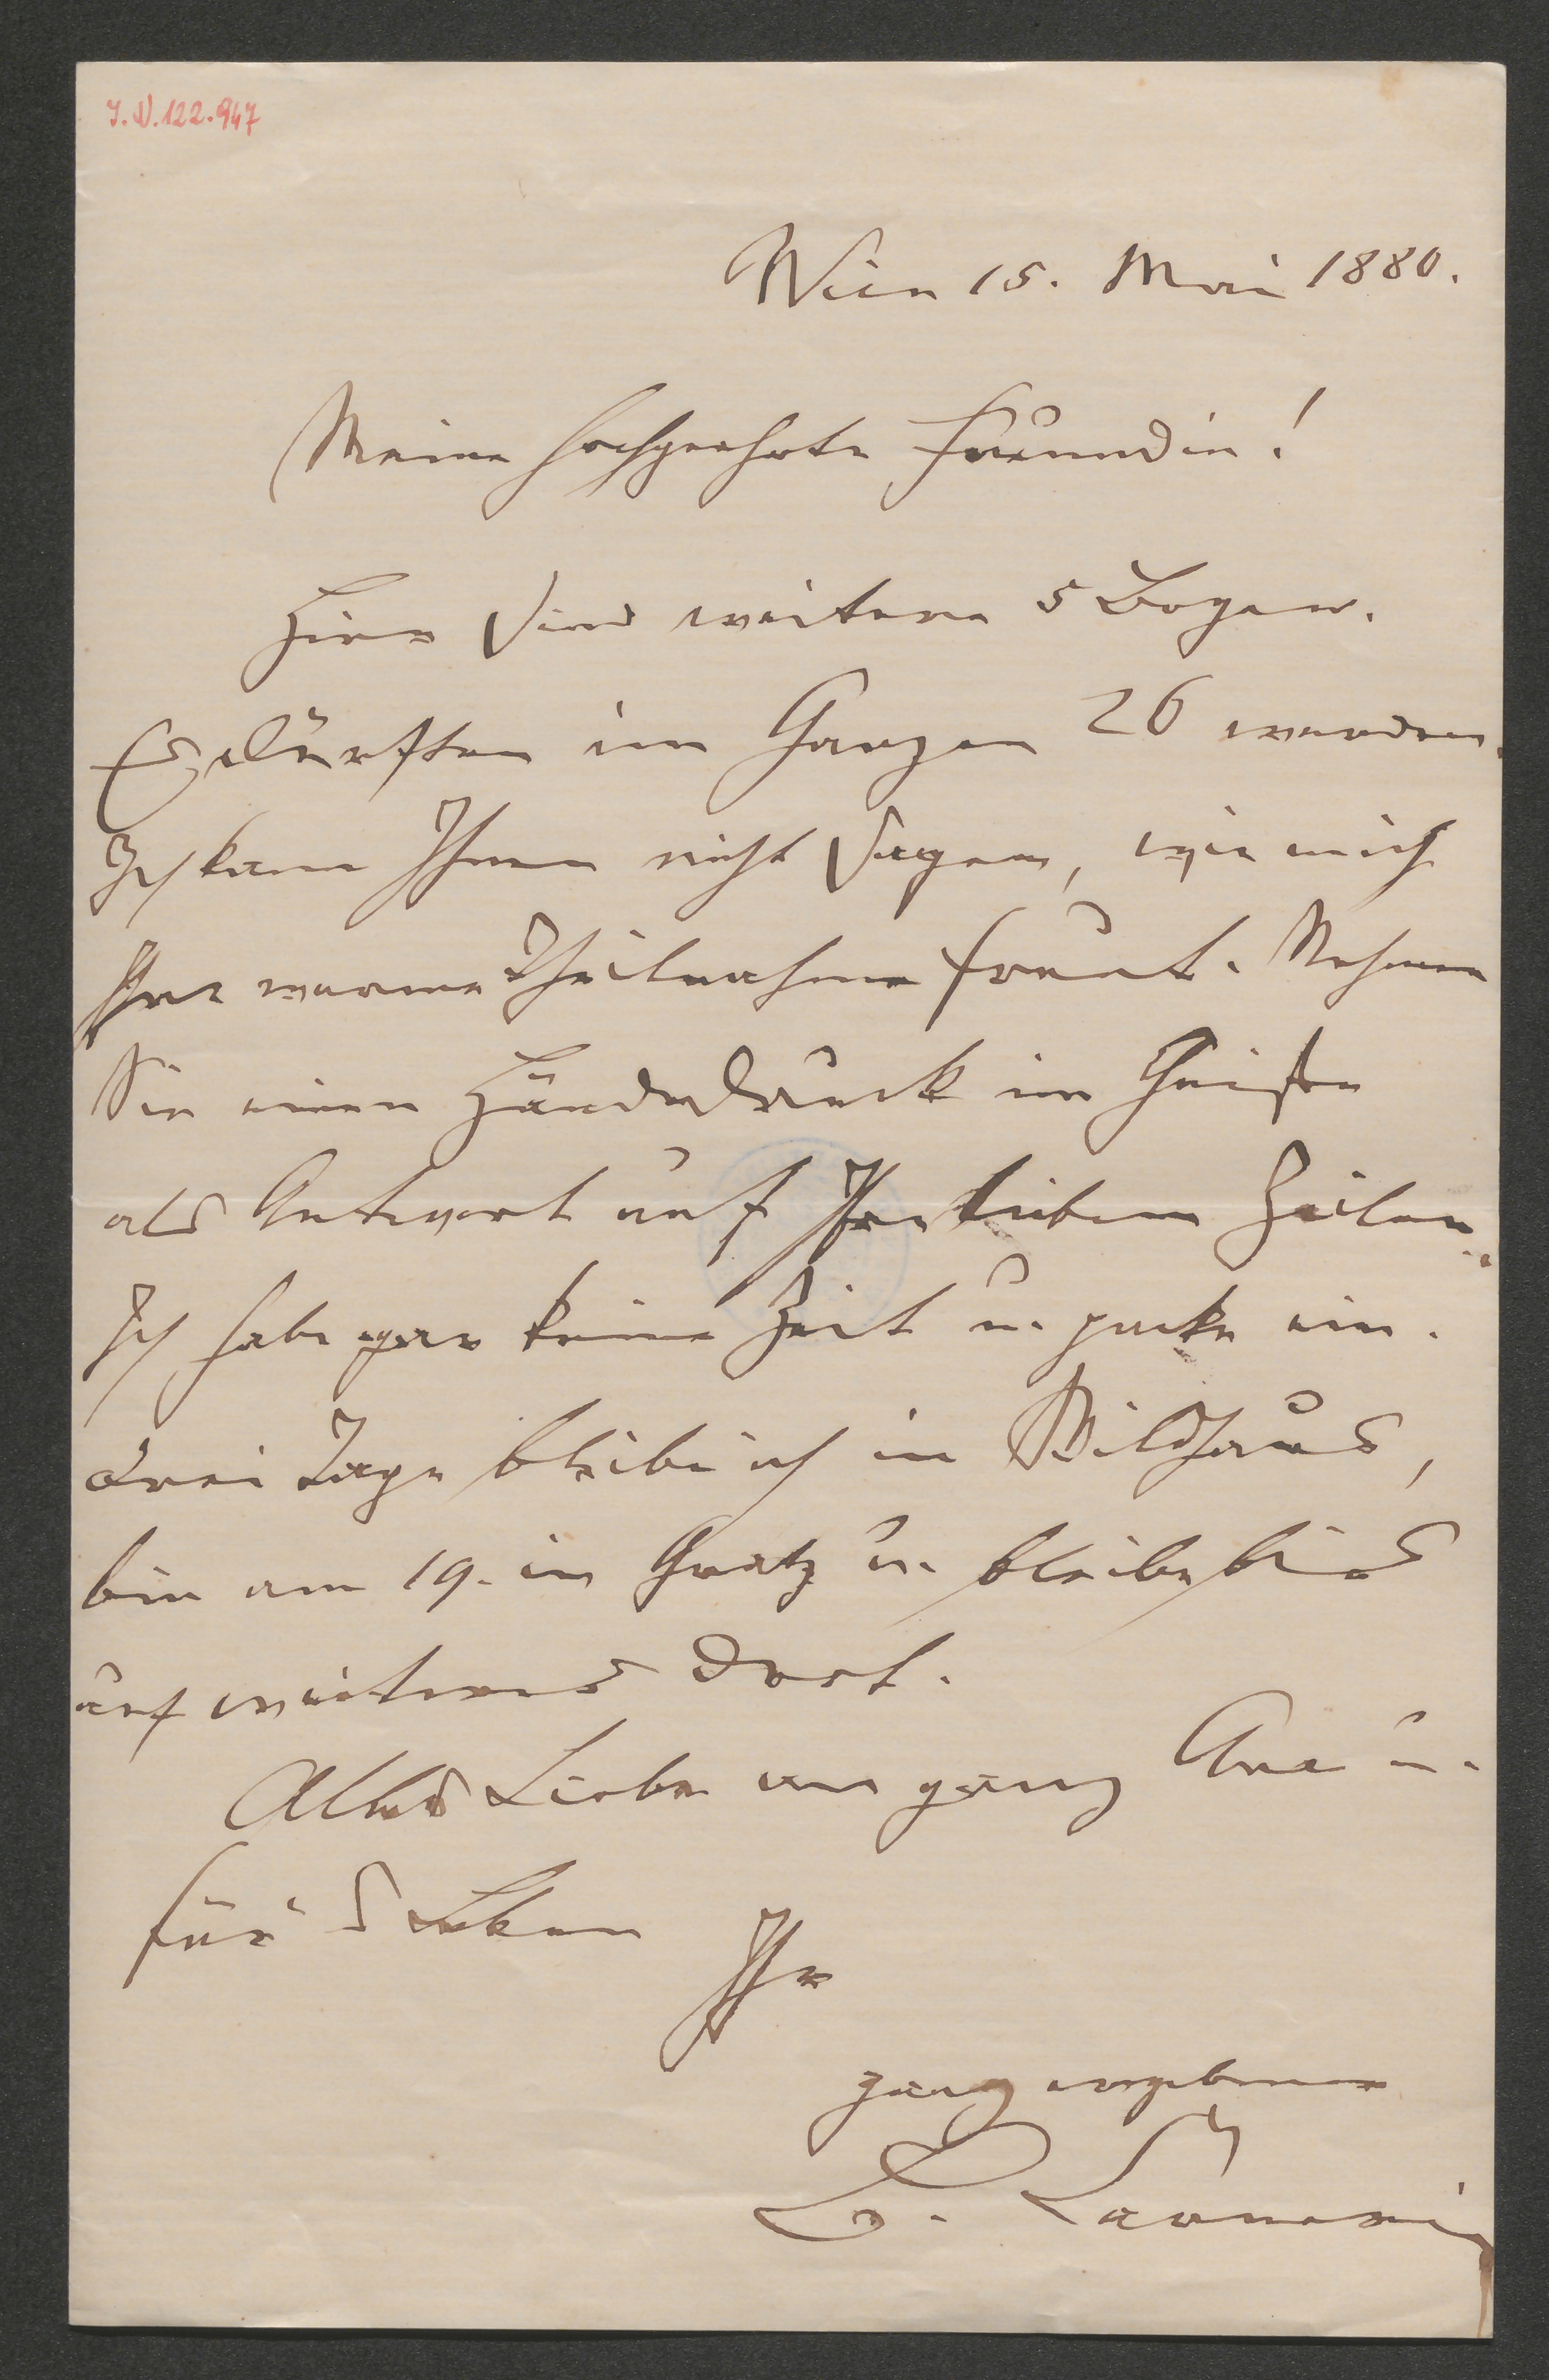 I.N.122.947
Wien 15. Mai 1880.
Meine hochgeehrte Freundin!
Hier sind weitere 5 Bogen.
Es dürften im Ganzen 26 werden.
Ich kann Ihnen nicht sagen, wie mich
Ihre warme Theilnahme freut. Nehmen
Sie einen Händedruck im Geiste
als Antwort auf Ihre lieben Zeilen.
Ich habe gar keine Zeit u. packe ein.
Drei Tage bleibe ich in Wildhaus,
bin am 19. in Gratz u. bleibe bis
auf weiteres dort.
Alles Liebe an ganz Ana u.
für's Leben
Ihr
ganz ergebener
B. Carneri